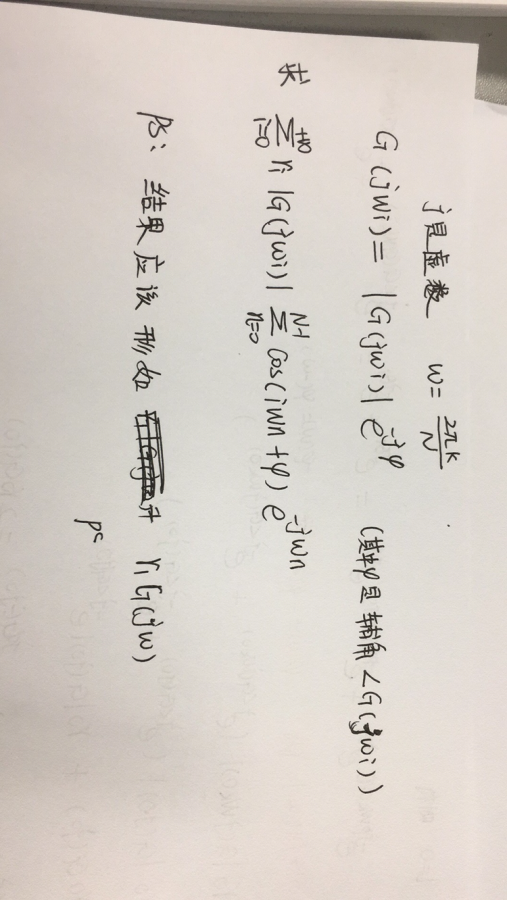 j是虚数 w=2πk/N
G(jwi)=|G(jwi)|e^-jφ (其中φ是辅角∠G(jwi))
求 ∑_{i=0}^{+∞} ri |G(jwi)| ∑_{n=0}^{N-1} cos(iwn+φ) e^-jwn
ps: 结果应该形如 r1G(jw)
ps